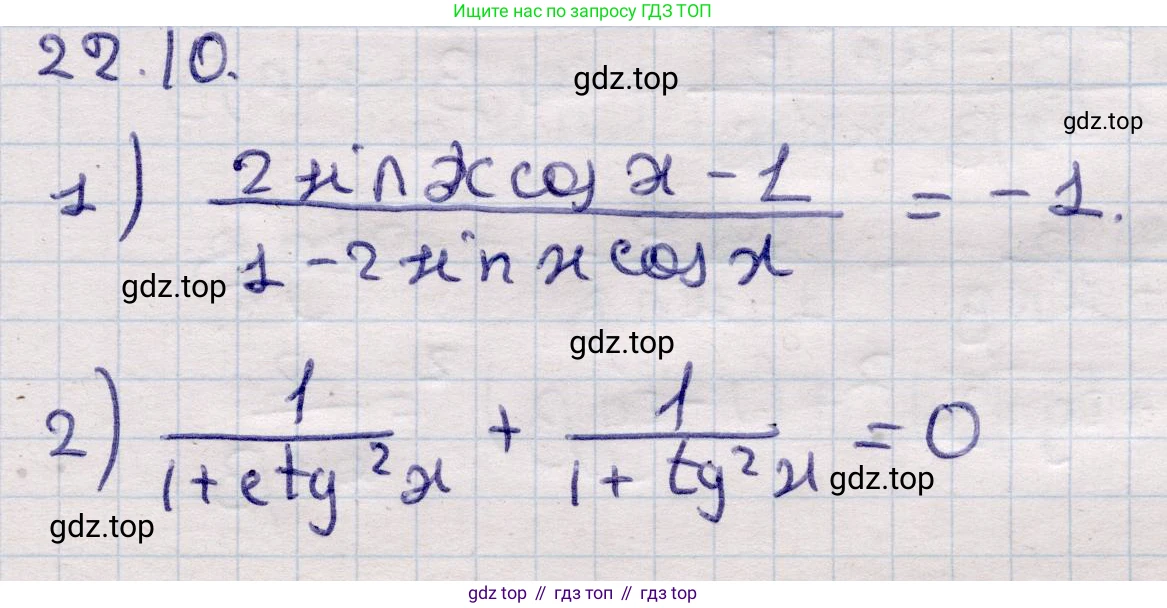 Ищите нас по запросу ГДЗ ТОП
22.10.
gdz.top
gdz.top
1) (2 sin x cos x - 1) / (1 - 2 sin x cos x) = -1.
gdz.top
gdz.top
2) 1 / (1 + ctg² x) + 1 / (1 + tg² x) = 0
gdz.top
gdz.top
gdz top // гдз топ // гдз top